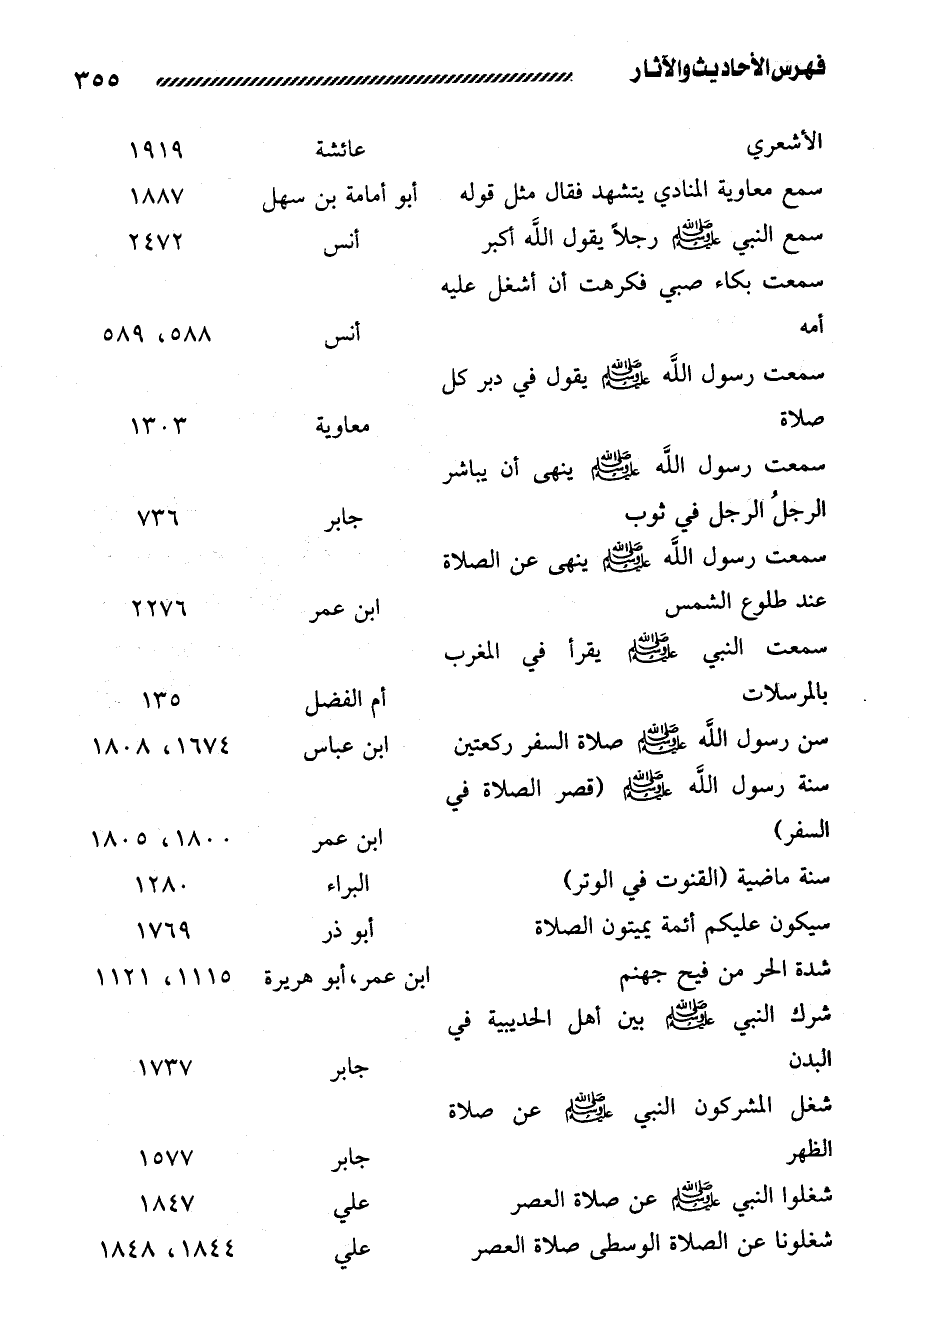 فهرس الأحاديث والآثار ٣٥٥
الأشعري عائشة ١٩١٩
سمع معاوية المنادي يتشهد فقال مثل قوله أبو أمامة بن سهل ١٨٨٧
سمع النبي ﷺ رجلاً يقول اللَّه أكبر أنس ٢٤٧٢
سمعت بكاء صبي فكرهت أن أشغل عليه
أمه أنس ٥٨٨، ٥٨٩
سمعت رسول اللَّه ﷺ يقول في دبر كل
صلاة معاوية ١٣٠٣
سمعت رسول اللَّه ﷺ ينهى أن يباشر
الرجلُ الرجل في ثوب جابر ٧٣٦
سمعت رسول اللَّه ﷺ ينهى عن الصلاة
عند طلوع الشمس ابن عمر ٢٢٧٦
سمعت النبي ﷺ يقرأ في المغرب
بالمرسلات أم الفضل ١٣٥
سن رسول اللَّه ﷺ صلاة السفر ركعتين ابن عباس ١٦٧٤، ١٨٠٨
سنة رسول اللَّه ﷺ (قصر الصلاة في
السفر) ابن عمر ١٨٠٠، ١٨٠٥
سنة ماضية (القنوت في الوتر) البراء ١٢٨٠
سيكون عليكم أئمة يميتون الصلاة أبو ذر ١٧٦٩
شدة الحر من فيح جهنم ابن عمر، أبو هريرة ١١١٥، ١١٢١
شرك النبي ﷺ بين أهل الحديبية في
البدن جابر ١٧٣٧
شغل المشركون النبي ﷺ عن صلاة
الظهر جابر ١٥٧٧
شغلوا النبي ﷺ عن صلاة العصر علي ١٨٤٧
شغلونا عن الصلاة الوسطى صلاة العصر علي ١٨٤٤، ١٨٤٨